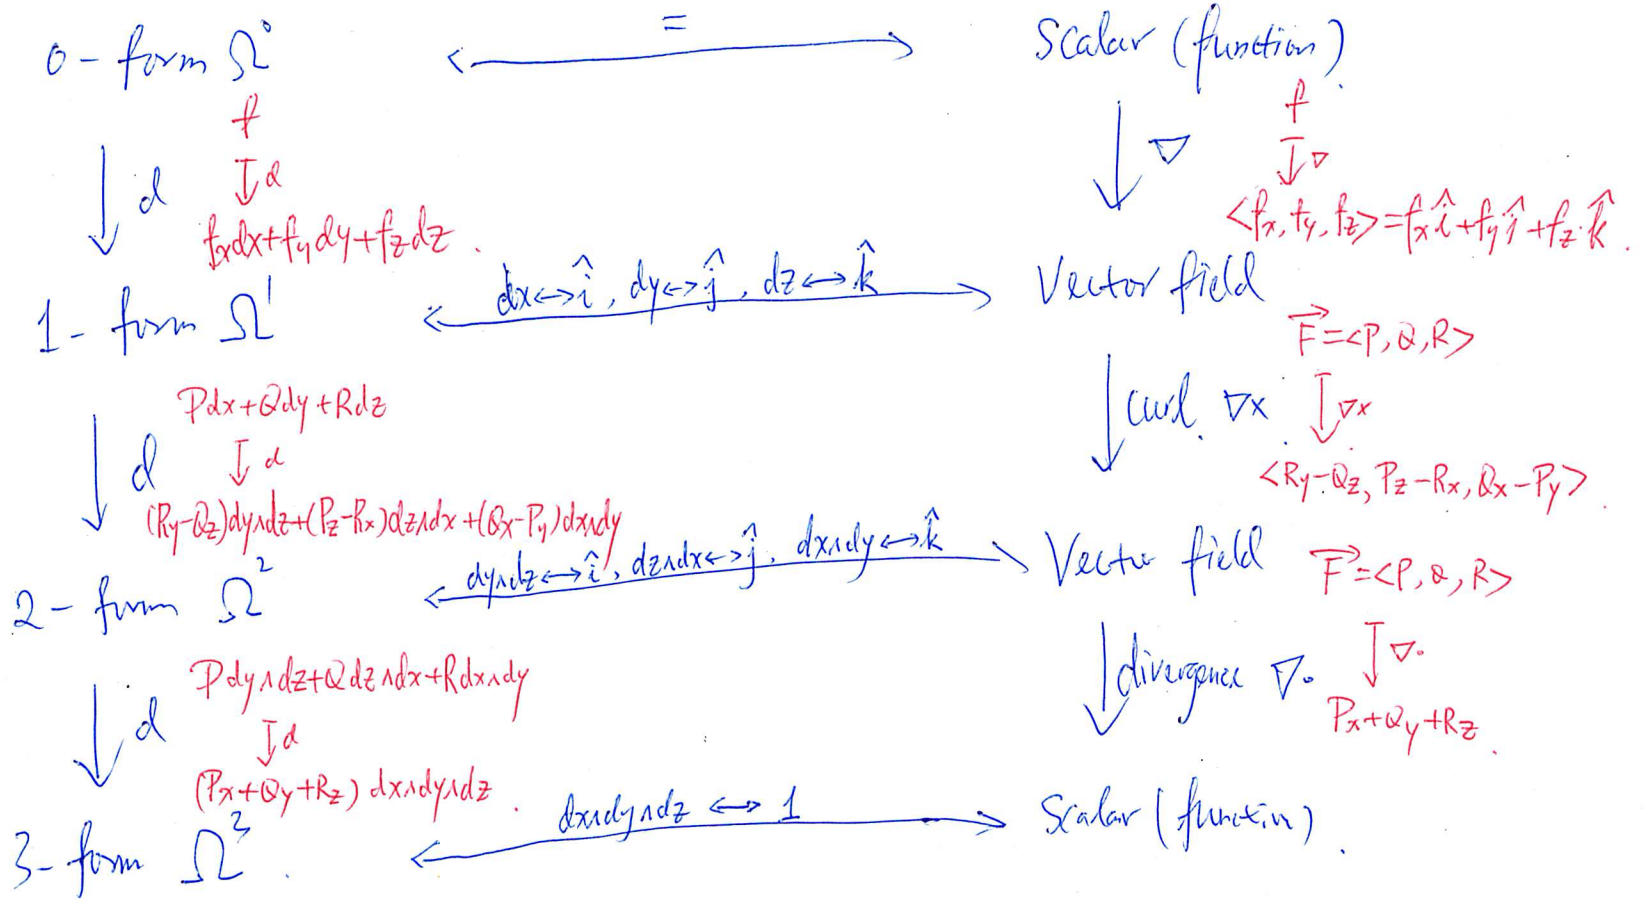 0-form Ω⁰ ⟷ = Scalar (function).
f f
↓ d ↧ d ↓ ∇ ↧ ∇
f_x dx+f_y dy+f_z dz. <f_x, f_y, f_z>=f_x î+f_y ĵ+f_z·k̂.
1-form Ω¹ ⟷ dx↔î, dy↔ĵ, dz↔k̂ Vector field
F⃗=<P,Q,R>
Pdx+Qdy+Rdz
↓ d ↧ d ↓ curl. ∇x. ↧ ∇x
(R_y-Q_z)dy∧dz+(P_z-R_x)dz∧dx+(Q_x-P_y)dx∧dy <R_y-Q_z, P_z-R_x, Q_x-P_y>.
2-form Ω² ⟷ dy∧dz↔î, dz∧dx↔ĵ, dx∧dy↔k̂ Vector field F⃗=<P,Q,R>
Pdy∧dz+Qdz∧dx+Rdx∧dy
↓ d ↧ d ↓ divergence ∇· ↧ ∇·
(P_x+Q_y+R_z) dx∧dy∧dz. P_x+Q_y+R_z.
3-form Ω³. ⟷ dx∧dy∧dz ↔ 1 Scalar (function).